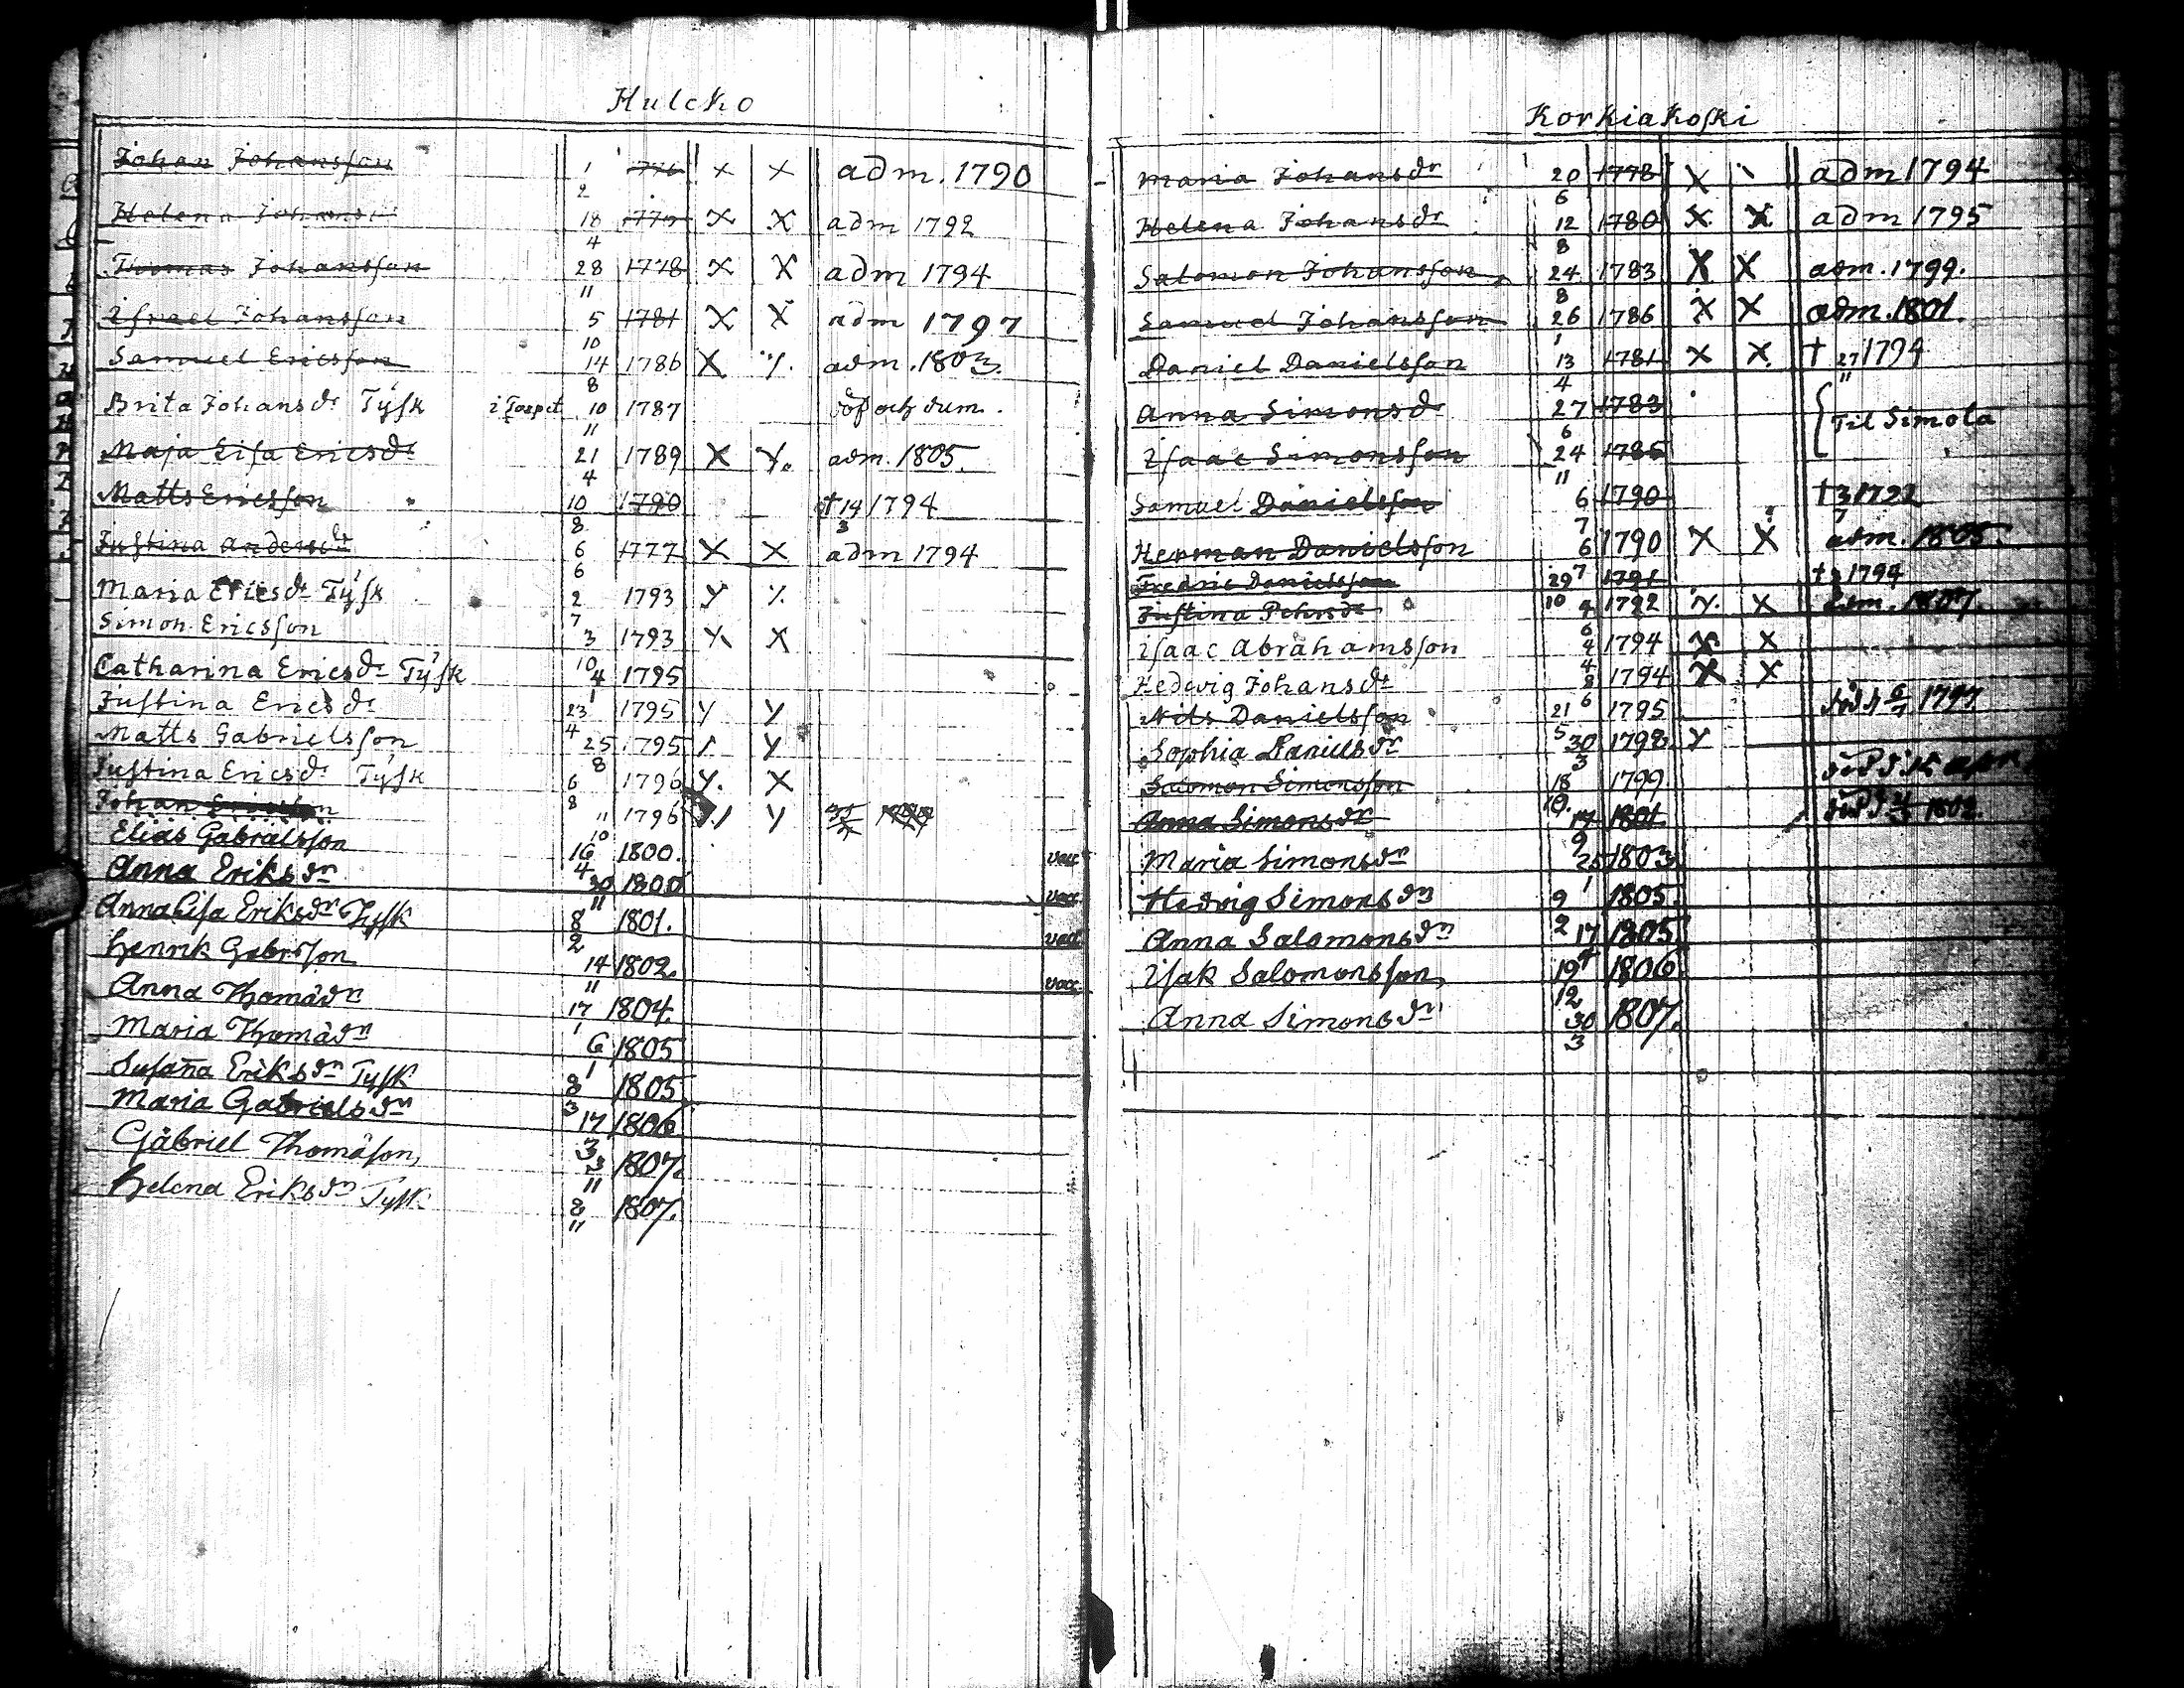 Hulcko
Johan Johansson 1 2 1776 x x adm. 1790
Helena Johans 18 4 x X adm 1792
Thomas Johansson 28 11 1778 x X adm 1794
Israel Johansson 5 10 1781 X X adm 1797
Samuel Ericsson 14 8 1786 X adm. 1803.
Brita Johansdr Tysk 10 11 1787 döf och dum.
Maja Lisa Ericsdr 21 4 1789 X adm. 1805.
Matts Ericsson 10 8 1790 † 14 3 1794
Justina Andersdr 6 6 1777 X X adm 1794
Maria Ericsdr Tysk 2 7 1793
Simon Ericsson 3 10 1793 X
Catharina Ericsdr Tysk 4 1 1795
Justina Ericsdr 23 4 1795
Matts Gabrielsson 25 8 1795
Justina Ericsdr Tysk 6 8 1796 X
Johan Ericsson 11 10 1796
Elias Gabrielsson 16 4 1800. vacc
Anna Eriksdr 30 11 1800 vacc
Anna Lisa Eriksdr Tysk 8 2 1801. vacc
Henrik Gabrsson 14 11 1802. vacc
Anna Thomädr 17 1 1804.
Maria Thomädr 6 1 1805
Susana Eriksdr Tysk 8 3 1805
Maria Gabrielsdr 17 3 1806
Gabriel Thomäson, 3 11 1807.
Helena Eriksdr Tysk 8 11 1807.
Korkiakoski
Maria Johansdr 20 6 1778 X adm 1794
Helena Johansdr 12 8 1780 X X adm 1795
Salomon Johansson 24 8 1783 X X adm. 1799.
Samuel Johansson 26 1 1786 X X adm. 1801.
Daniel Danielsson 13 4 1781 X X † 27 11 1794
Anna Simonsdr 27 6 1783 Til Simola
Isaac Simonsson 24 11 1785
Samuel Danielsson 6 7 1790 † 3 7
Herman Danielsson 6 7 1790 X X adm. 1805.
Fredric Danielsson 29 10 1791 † 1794
Justina Pehrsdr 1792 X adm. 1807.
Isaac Abrahamsson 1794 X X
Hedvig Johansdr 8 6 1794 X X
Nils Danielsson 21 5 1795 1797
Sophia Danielsdr 30 3 1798
Salomon Simonsson 18 10. 1799
Anna Simonsdr 17 9 1801 1802.
Maria Simonsdr 25 1 1803.
Hedvig Simonsdr 9 2 1805.
Anna Salomonsdr 17 4 1805
Isak Salomonsson, 19 12 1806
Anna Simonsdr 30 3 1807.